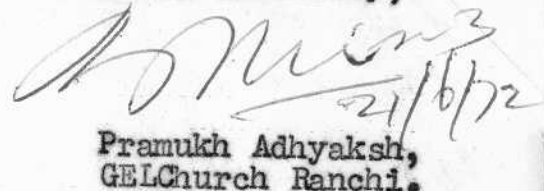 21/6/72
Pramukh Adhyaksh,
GELChurch Ranchi.